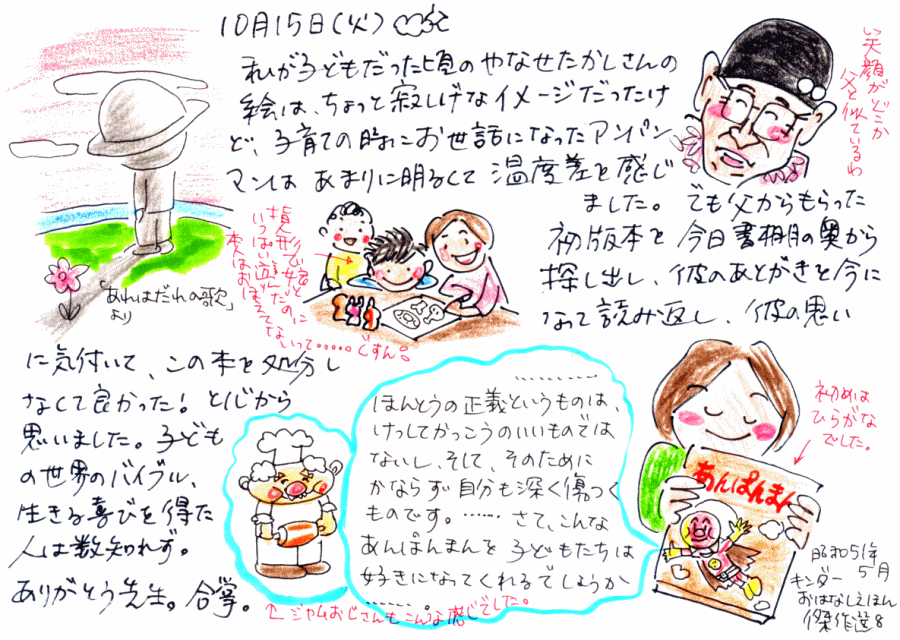 10月15日(火)
私が子どもだった頃のやなせたかしさんの
絵は、ちょっと寂しげなイメージだったけ
ど、子育ての時にお世話になったアンパン
マンは あまりに明るくて 温度差を感じ
ました。でも父からもらった
初版本を 今日書棚の奥から
探し出し、彼のあとがきを今に
なって読み返し、彼の思い
に気付いて、この本を処分し
なくて良かった！と心から
思いました。子ども
の世界のバイブル、
生きる喜びを得た
人は数知れず。
ありがとう先生。合掌。
い笑顔がどこか
父と似ているわ
「あれはだれの歌」
より
人形で娘と
いっぱい遊んだのに
本人はおぼえてな
いって・・・・・ぐすん。
初めは
ひらがな
でした。
・・・・・・・・・・
ほんとうの正義というものは、
けっしてかっこうのいいものでは
ないし、そして、そのために
かならず自分も深く傷つく
ものです。・・・・・・ さて、こんな
あんぱんまんを 子どもたちは
好きになってくれるでしょうか
・・・・・・。
あんぱんまん
昭和51年
5月
キンダー
おはなしえほん
傑作選8
↑ジャムおじさんもこんな感じでした。